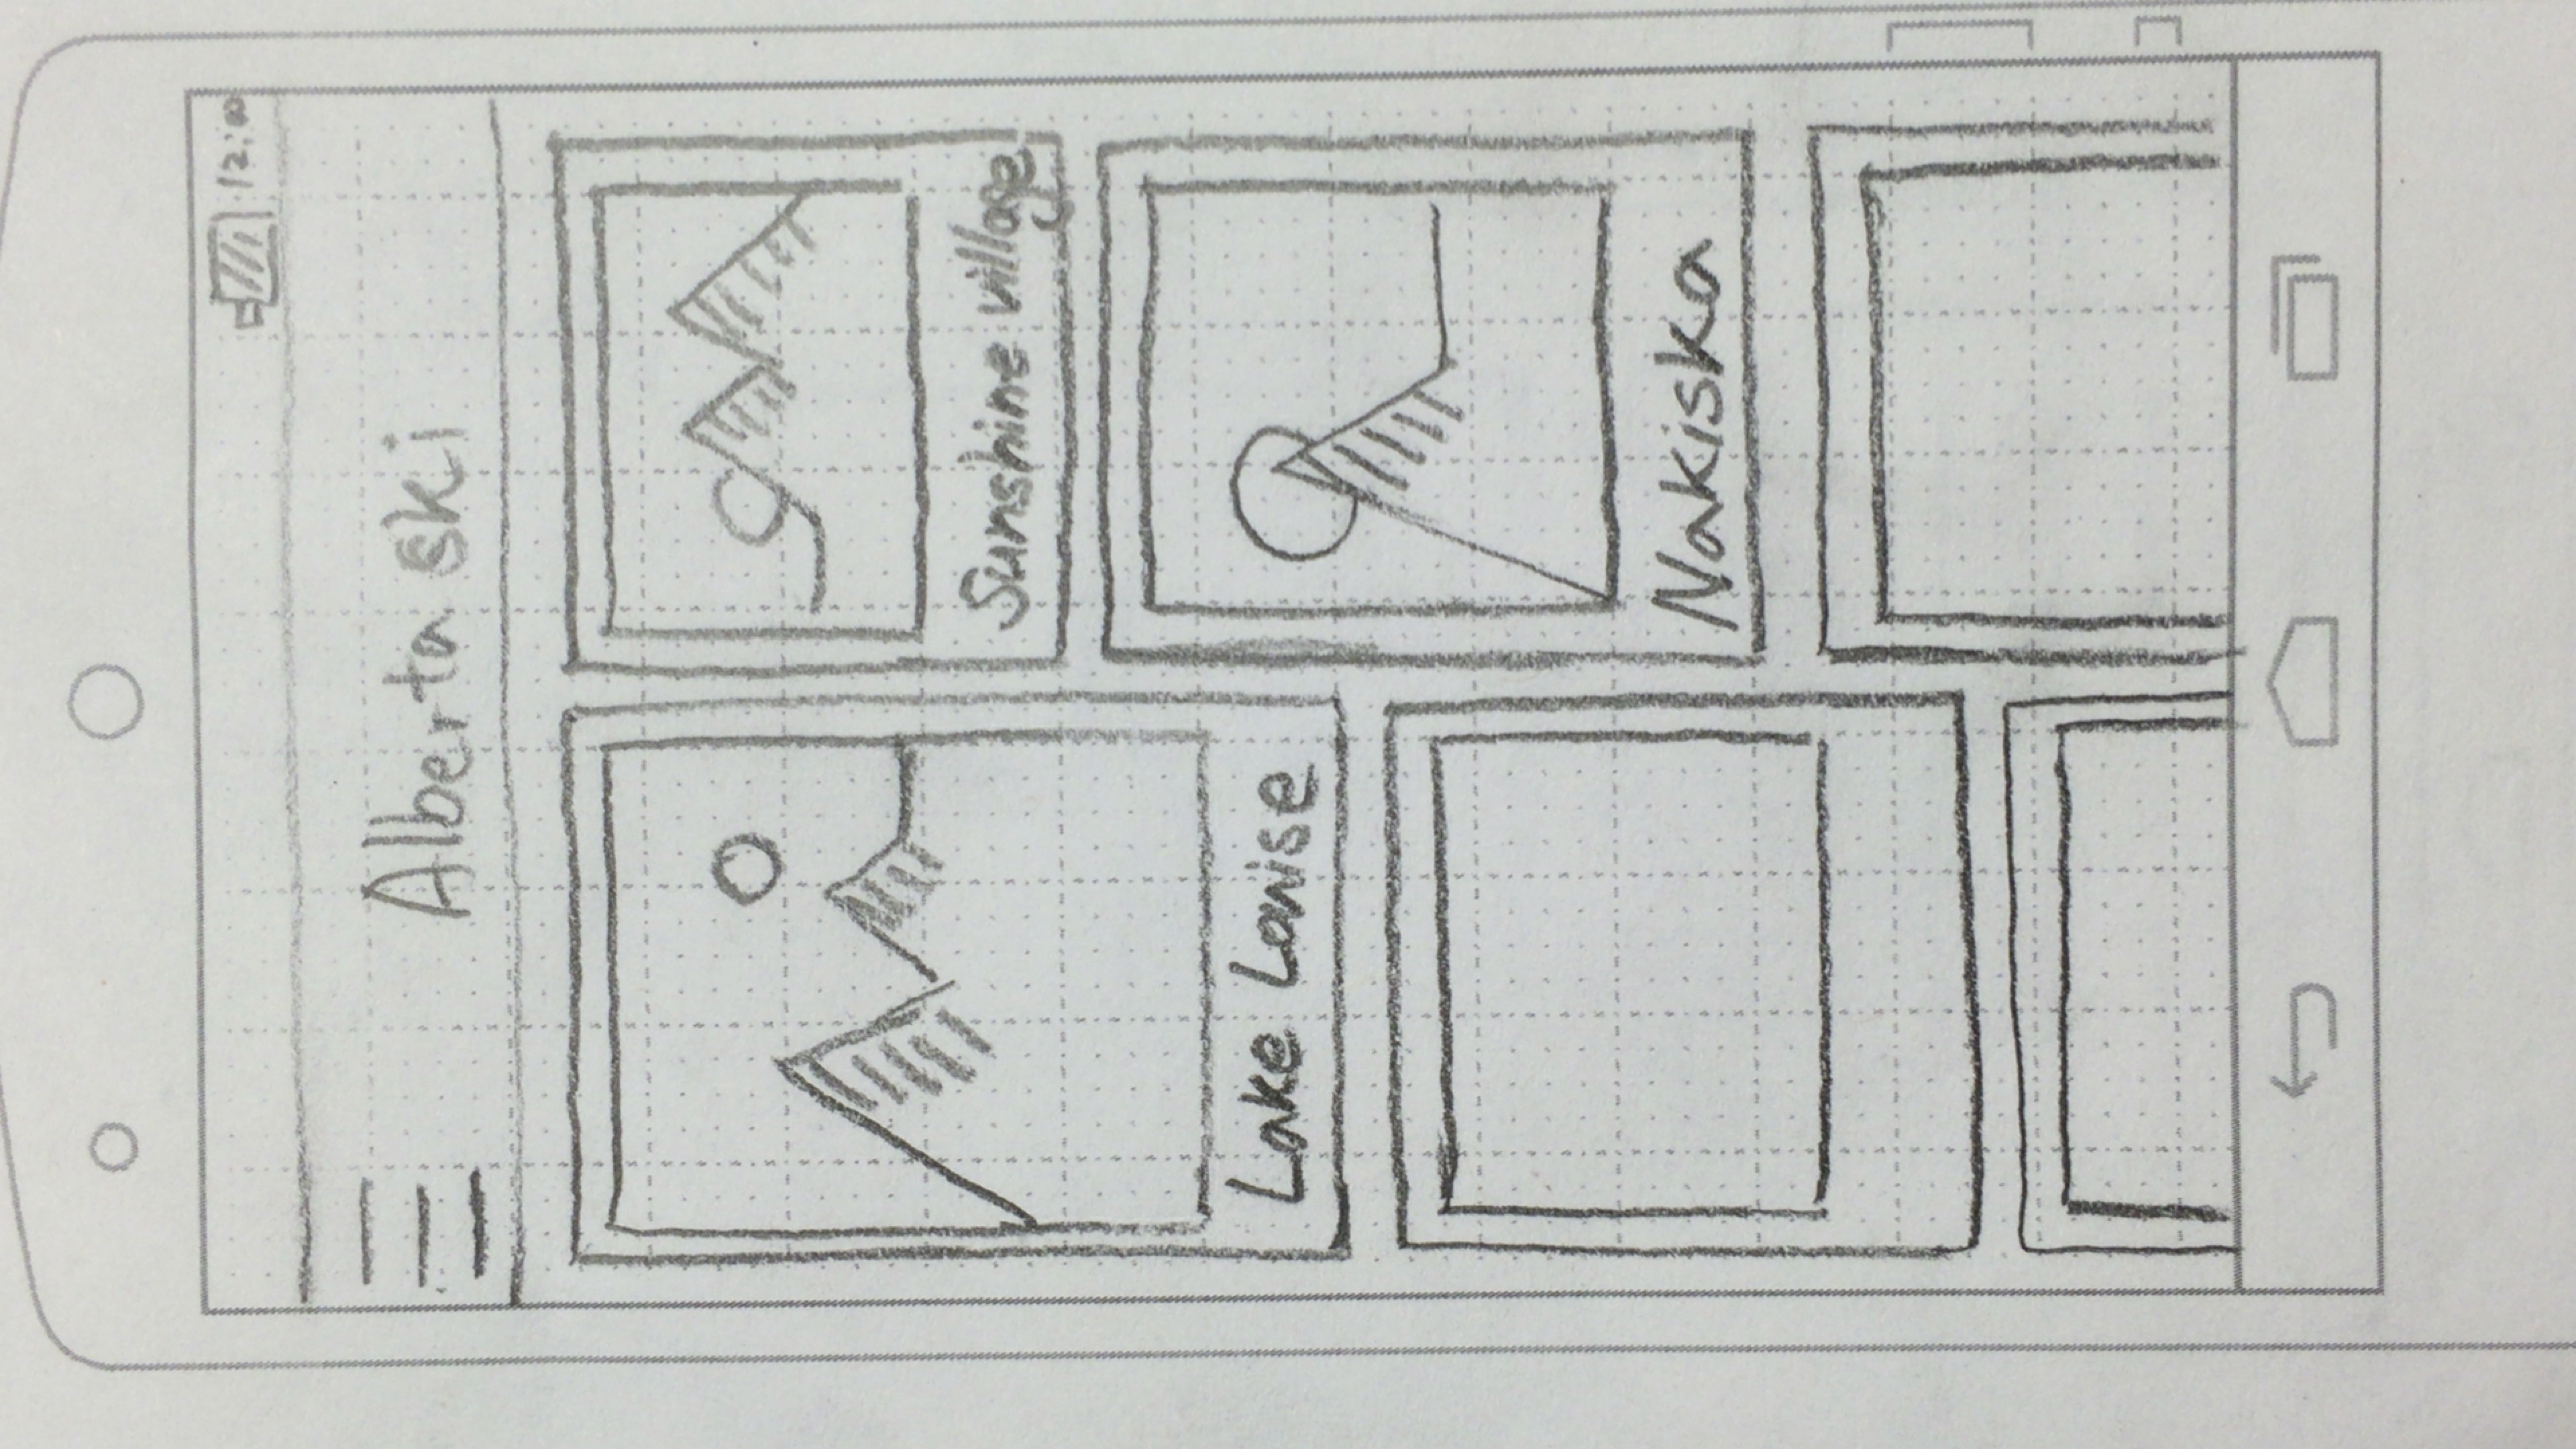 12:00
Alberta ski
Lake Louise
Sunshine village
Nakiska